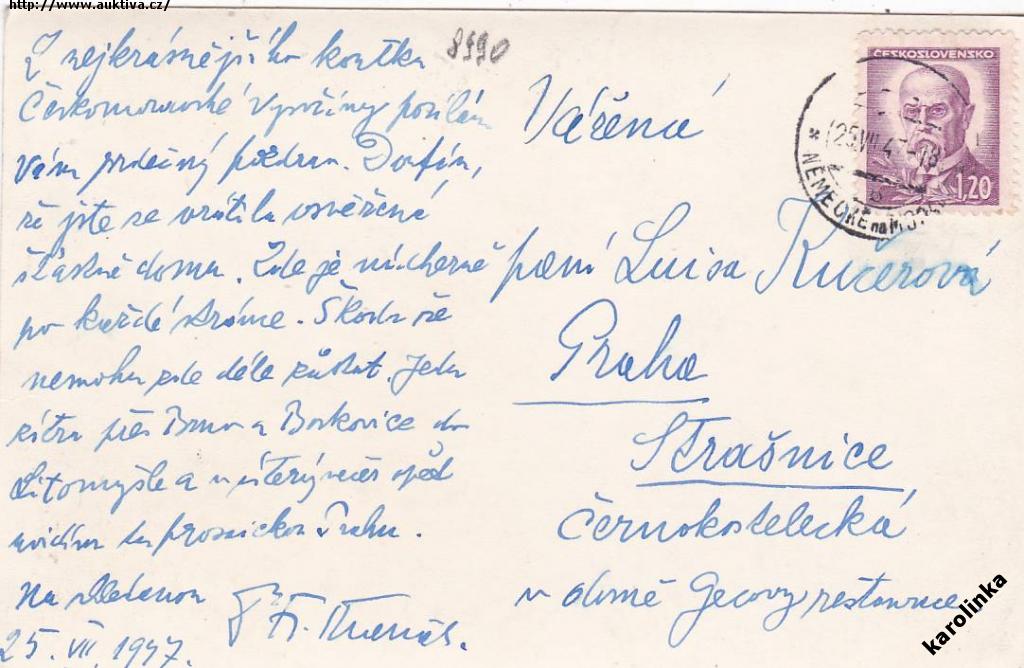 http://www.auktiva.cz/
8990
Z nejkrásnějšího koutku
Českomoravské Vysočiny posílám
Vám srdečný pozdrav. Doufám,
že jste se vrátila osvěžená
šťastně domů. Zde je nádherně
po každé stránce. Škoda že
nemohu zde déle zůstat. Jedu
zítra přes Brno a Boskovice do
Litomyšle a v úterý večer opět
uvidím tu prosaickou Prahu.
Na shledanou
Fr.
25. VII. 1947.
Vážená
paní Luisa Kucerová
Praha
Strašnice
Černokostelecká
v domě Gecovy restaurace
ČESKOSLOVENSKO
1,20
25.VII.47-18
* NĚMECKÉ na MOR.
karolinka